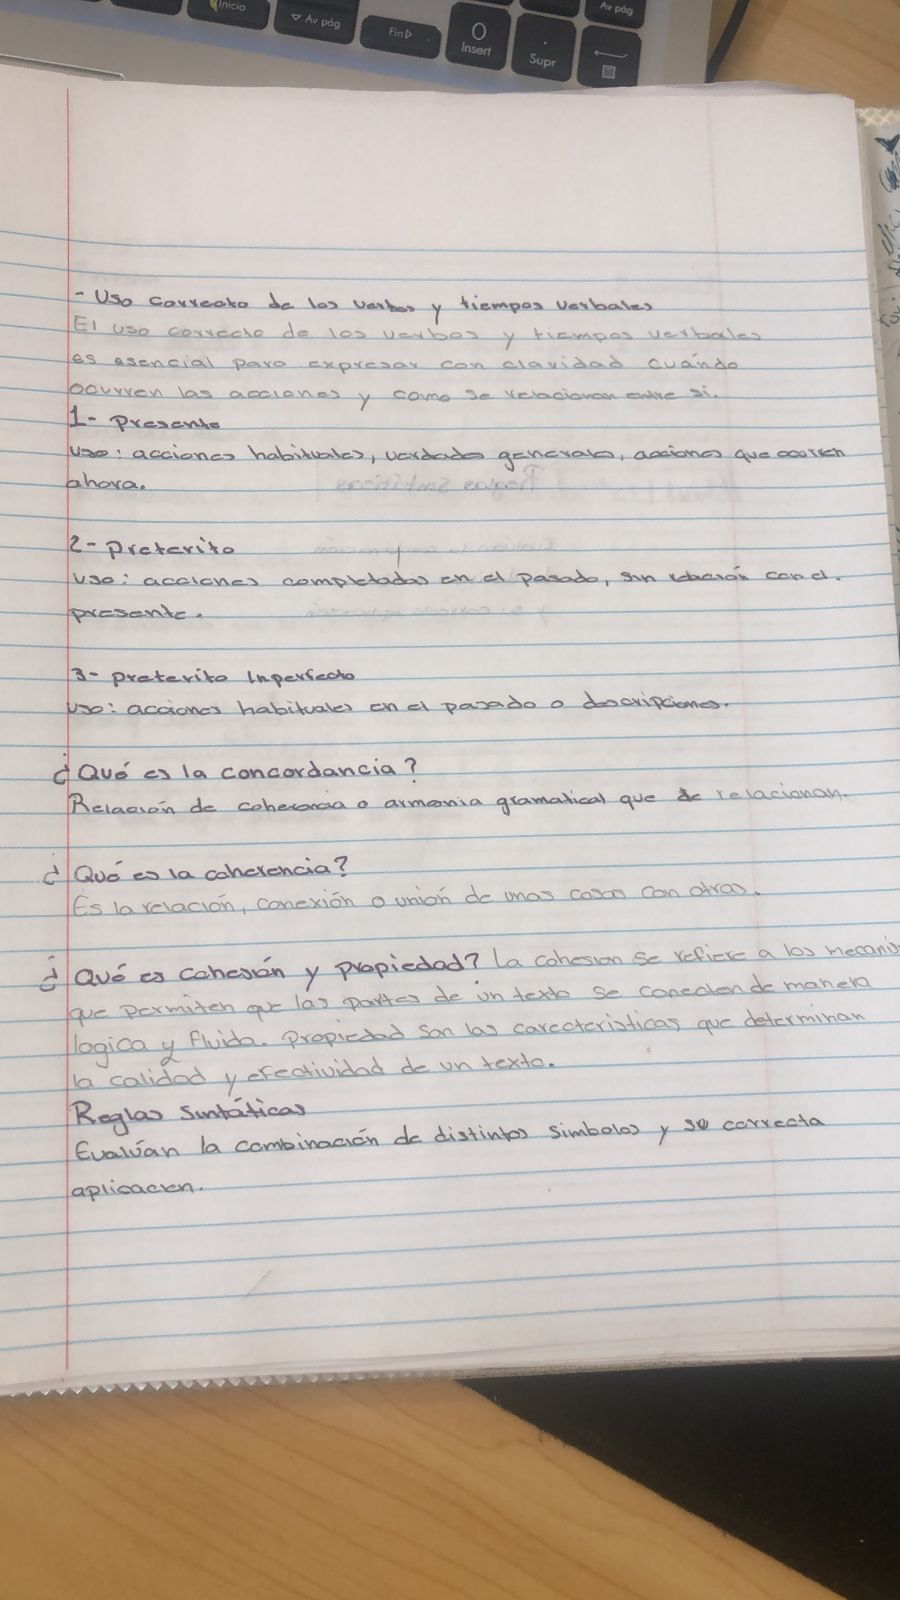 Inicio
Av pág
Fin
Insert
Supr
Av pág
- Uso correcto de los verbos y tiempos verbales
El uso correcto de los verbos y tiempos verbales
es esencial para expresar con claridad cuándo
ocurren las acciones y como se relacionan entre si.
1- Presente
uso: acciones habituales, verdades generales, acciones que ocurren
ahora.
2- preterito
uso: acciones completadas en el pasado, sin relación con el.
presente.
3- preterito Inperfecto
uso: acciones habituales en el pasado o descripciones.
¿Qué es la concordancia?
Relación de coherencia o armonia gramatical que se relacionan.
¿Qué es la coherencia?
Es la relación, conexión o unión de unas cosas con otras.
¿Qué es cohesión y propiedad? La cohesion se refiere a los mecanis
que permiten que las partes de un texto se conecten de manera
logica y fluida. Propiedad son las caracteristicas que determinan
la calidad y efectividad de un texto.
Reglas Sintáticas
Evalúan la combinación de distintos simbolos y su correcta
aplicacion.